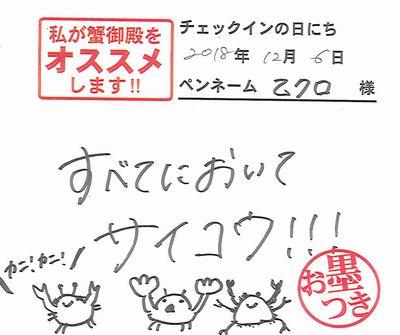 私が蟹御殿を
オススメ
します!!
チェックインの日にち
2018年 12月 6日
ペンネーム 乙クロ 様
すべてにおいて
サイコウ!!!
カニ!カニ!
お墨つき